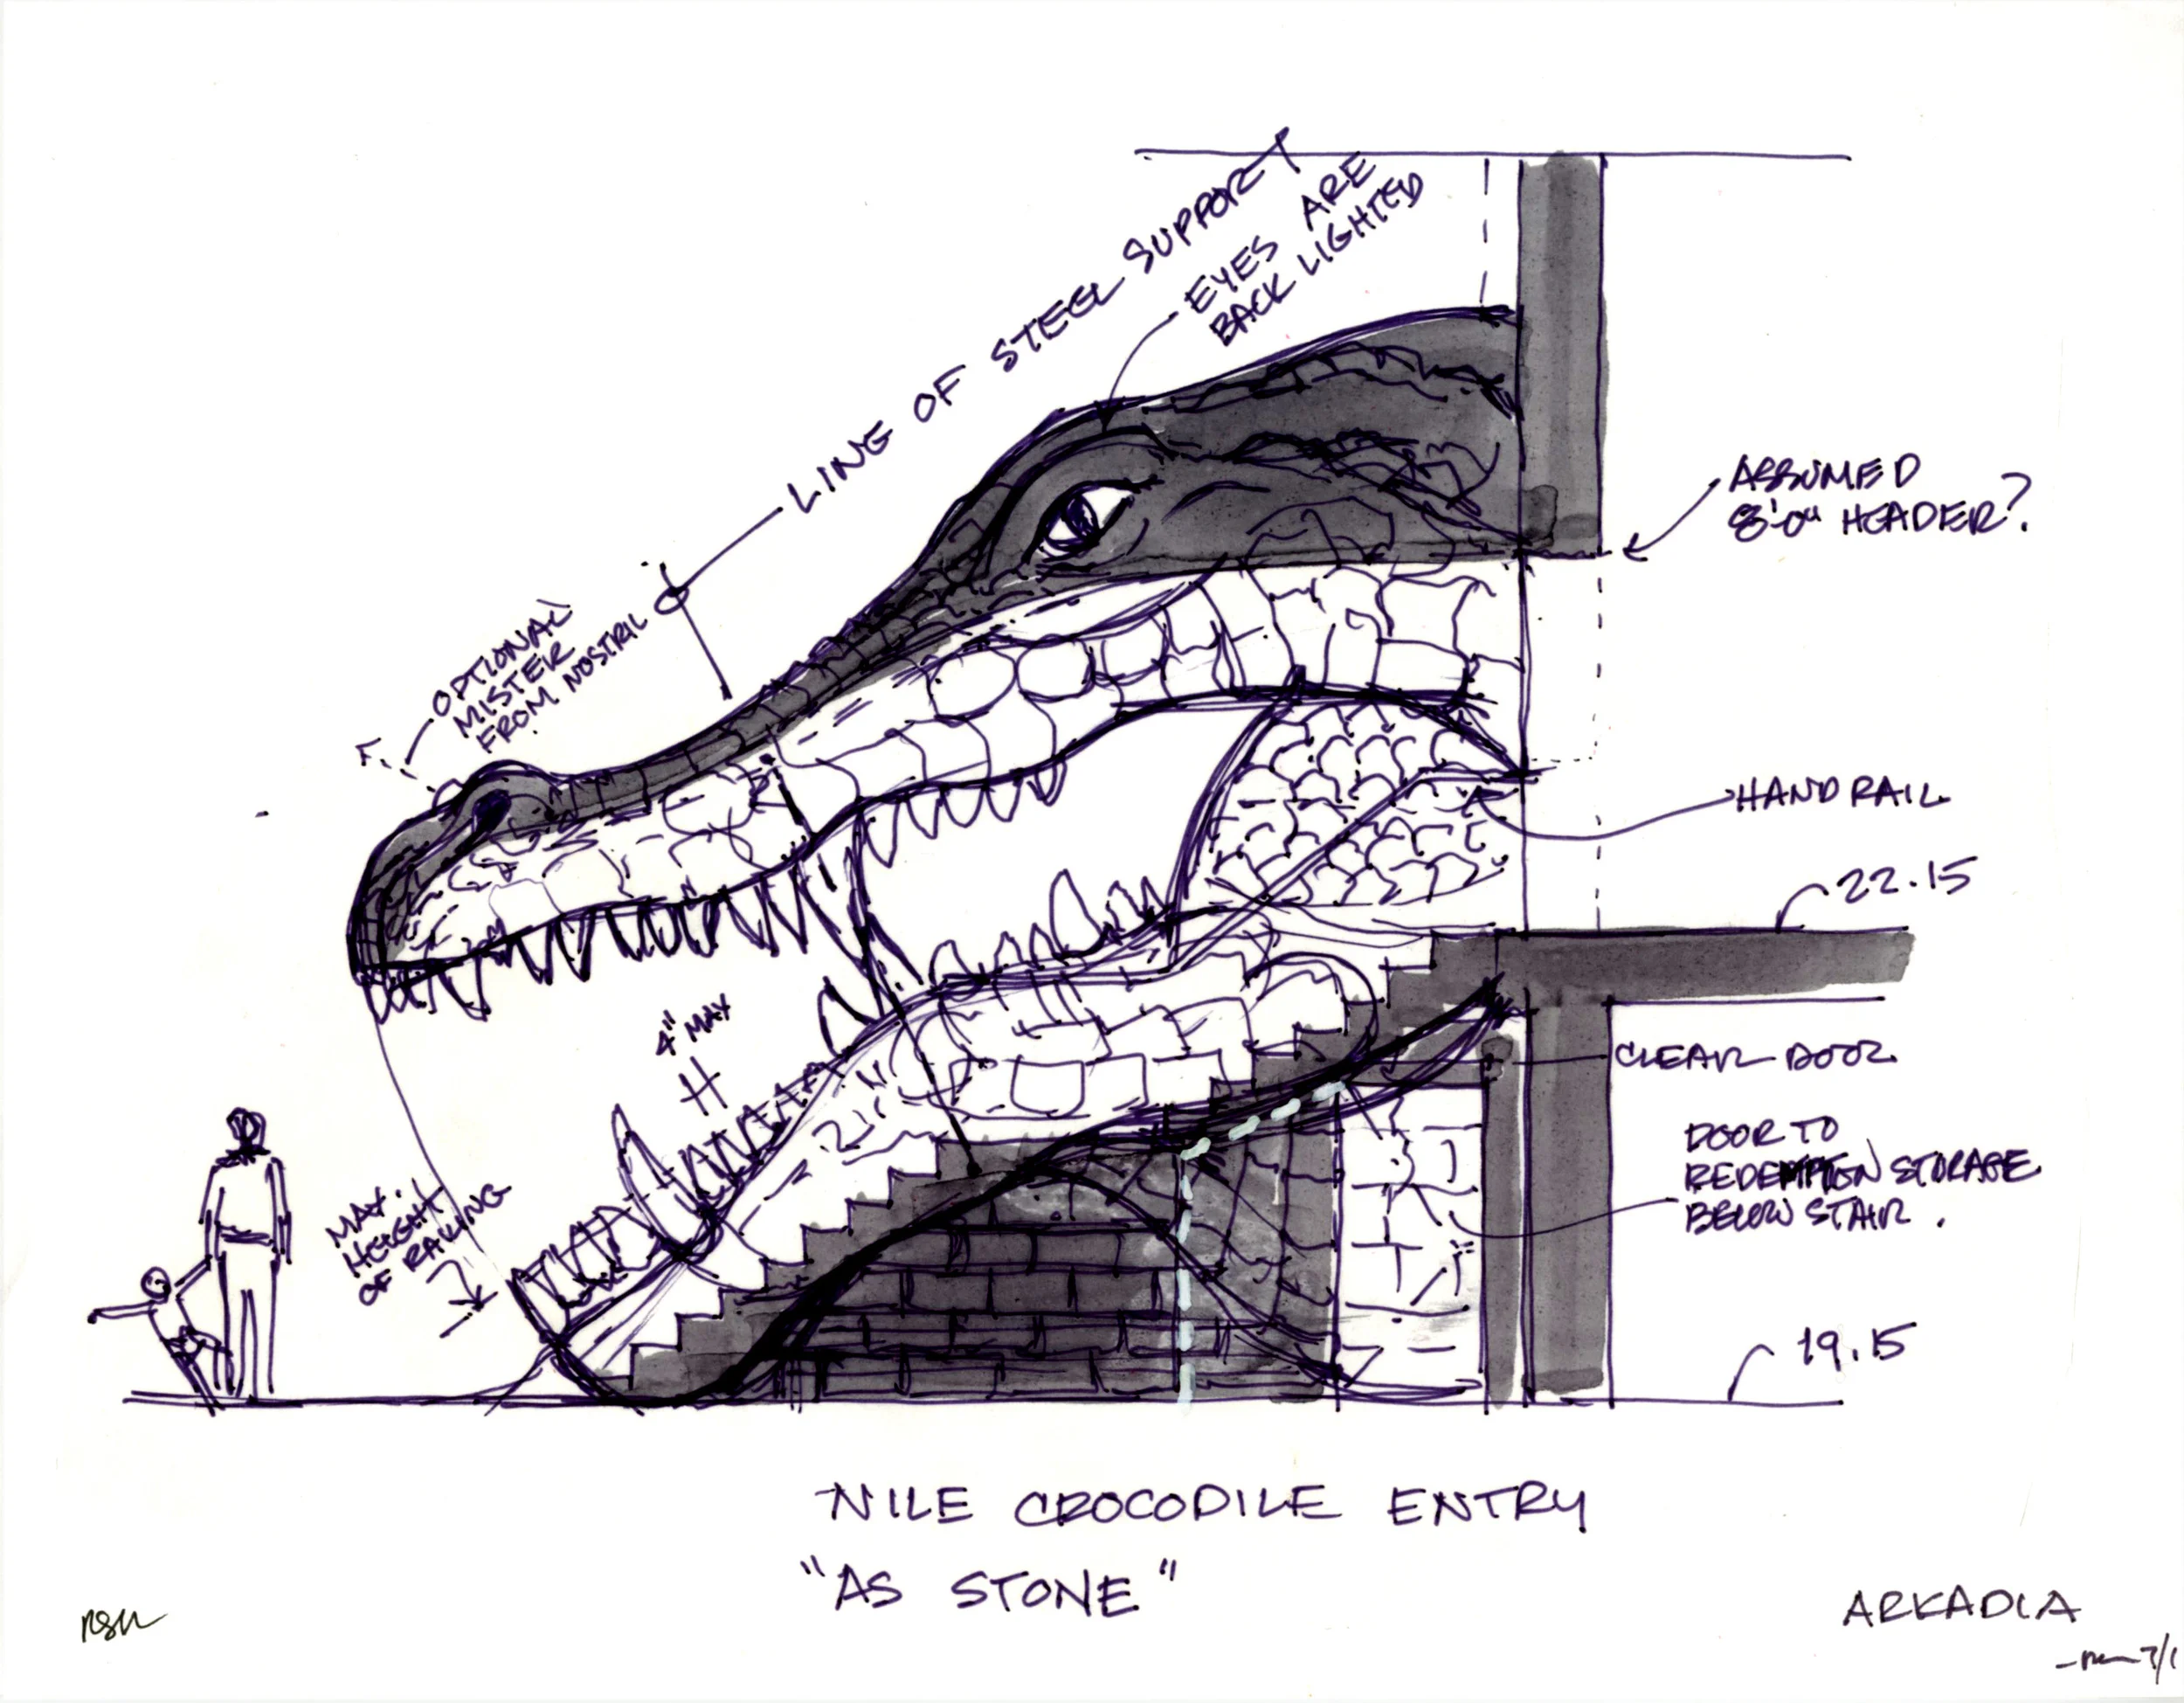 LINE OF STEEL SUPPORT
EYES ARE
BACK LIGHTED
ASSUMED
8'-0" HEADER?
OPTIONAL
MISTER
FROM NOSTRIL
HANDRAIL
22.15
4" MAX
CLEAR DOOR
DOOR TO
REDEMPTION STORAGE
BELOW STAIR.
MAX.
HEIGHT
OF RAKING
19.15
NILE CROCODILE ENTRY
"AS STONE"
ARKADIA
7/1